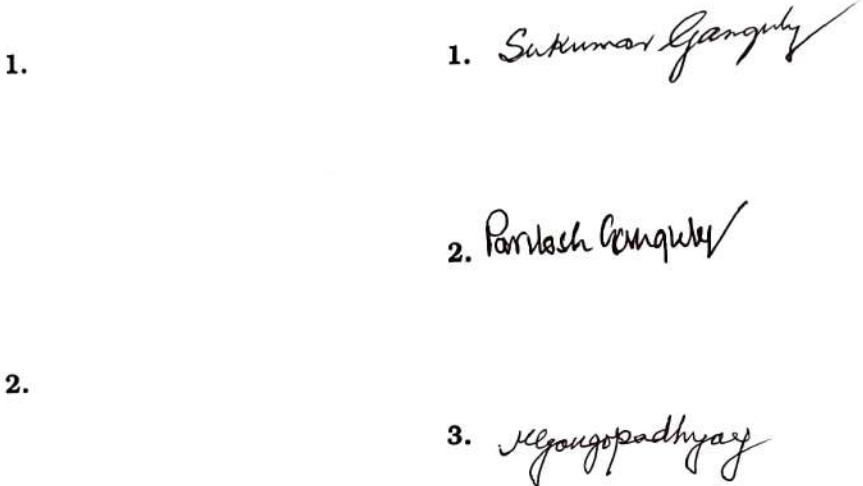 1.
1. Sukumar Ganguly
2. Paritosh Ganguly
2.
3. Gangopadhyay